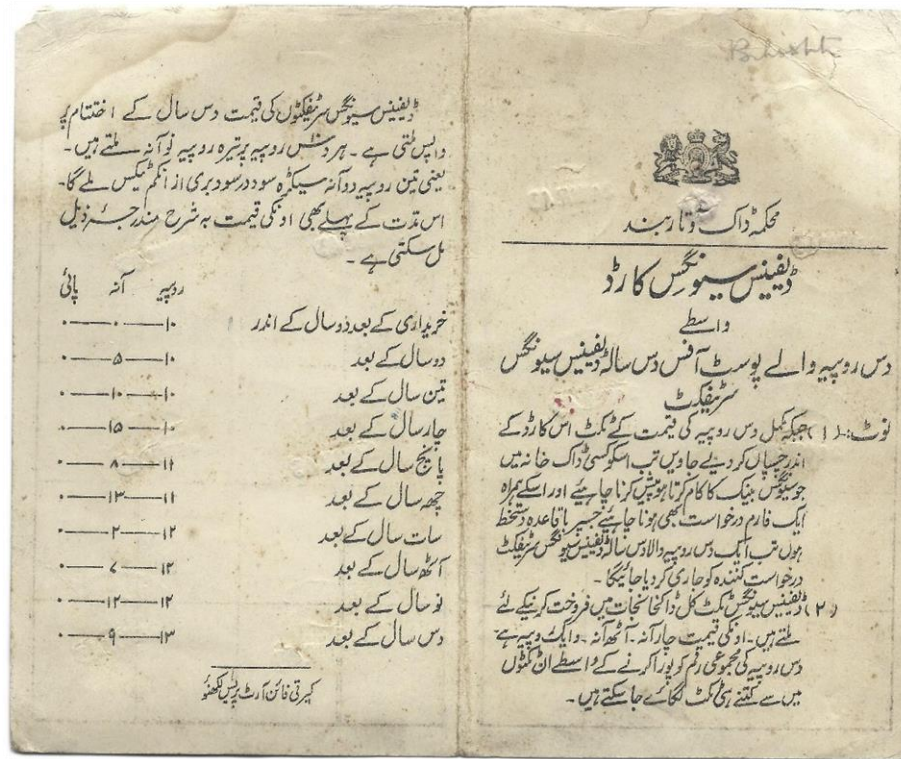 محکمہ ڈاک و تار ہند
ڈیفینس سیونگس کارڈ
واسطے
دس روپیہ والے پوسٹ آفس دس سالہ ڈیفینس سیونگس
سرٹیفکٹ
نوٹ:۔(۱) جبکہ مکمل دس روپیہ کی قیمت کے ٹکٹ اس کارڈ کے
اندر چسپاں کر دیے جاویں تب اسکو کسی ڈاک خانہ میں
جو سیونگس بینک کا کام کرتا ہو پیش کرنا چاہیئے اور اسکے ہمراہ
ایک فارم درخواست بھی ہونا چاہیئے جسپر باقاعدہ دستخط
ہوں تب ایک دس روپیہ والا دس سالہ ڈیفینس سیونگس سرٹیفکٹ
درخواست کنندہ کو جاری کر دیا جائیگا۔
(۲) ڈیفینس سیونگس ٹکٹ کل ڈاکخانجات میں فروخت کرنیکے لئے
ملتے ہیں۔ اونکی قیمت چار آنہ۔ آٹھ آنہ۔ و ایک روپیہ ہے
دس روپیہ کی مجموعی رقم کو پورا کرنے کے واسطے ان ٹکٹوں
میں سے کتنے ہی ٹکٹ لگائے جا سکتے ہیں۔
ڈیفینس سیونگس سرٹیفکٹوں کی قیمت دس سال کے اختتام پر
واپس ملتی ہے۔ ہر دس روپیہ پر تیرہ روپیہ نو آنہ ملتے ہیں۔
یعنی تین روپیہ دو آنہ سیکڑہ سود در سود بری از انکم ٹیکس ملے گا۔
اس مدت کے پہلے بھی اونکی قیمت بہ شرح مندرجہ ذیل
مل سکتی ہے۔
روپیہ آنہ پائی
خریداری کے بعد دو سال کے اندر ۱۰—۰—۰
دو سال کے بعد ۱۰—۵—۰
تین سال کے بعد ۱۰—۱۰—۰
چار سال کے بعد ۱۰—۱۵—۰
پانچ سال کے بعد ۱۱—۸—۰
چھ سال کے بعد ۱۱—۱۳—۰
سات سال کے بعد ۱۲—۲—۰
آٹھ سال کے بعد ۱۲—۷—۰
نو سال کے بعد ۱۲—۱۲—۰
دس سال کے بعد ۱۳—۹—۰
کیرتی فائن آرٹ پریس لکھنؤ